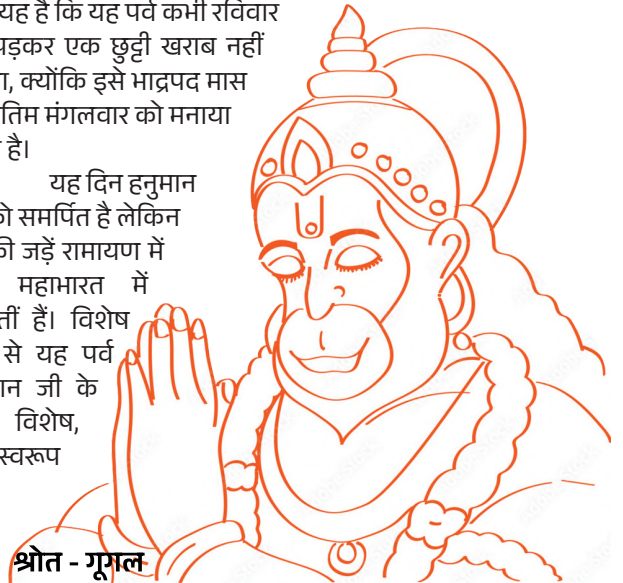 यह है कि यह पर्व कभी रविवार
पड़कर एक छुट्टी खराब नहीं
क्योंकि इसे भाद्रपद मास
मंगलवार को मनाया
है।
यह दिन हनुमान
समर्पित है लेकिन
जड़ें रामायण में
महाभारत में
हैं। विशेष
से यह पर्व
जी के
विशेष,
स्वरूप
श्रोत - गूगल